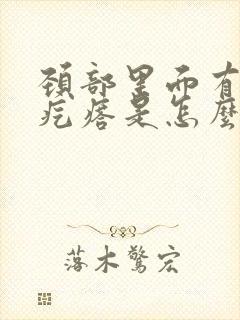 頸部里而有
疙瘩是怎麼
落木驚宏